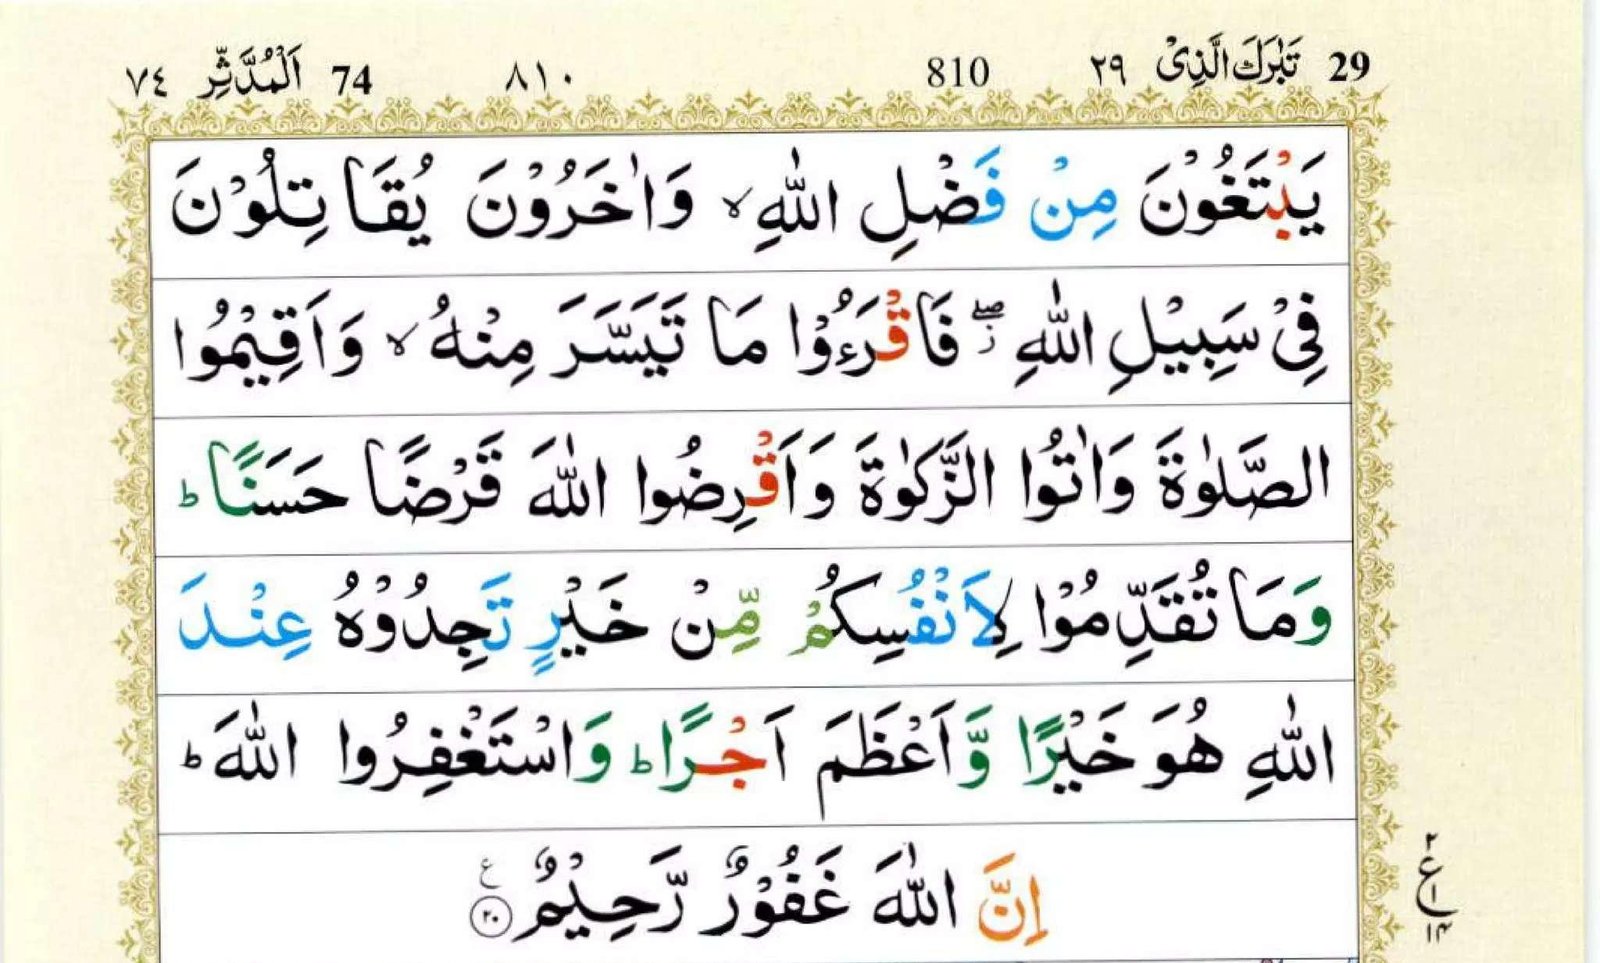 29 تَبٰرَكَ الَّذِىْ ٢٩ 810 ٨١٠ 74 اَلْمُدَّثِّر ٧٤
يَبْتَغُوْنَ مِنْ فَضْلِ اللّٰهِ ۙ وَاٰخَرُوْنَ يُقَاتِلُوْنَ
فِىْ سَبِيْلِ اللّٰهِ ۖ ز فَاقْرَءُوْا مَا تَيَسَّرَ مِنْهُ ۙ وَاَقِيْمُوا
الصَّلٰوةَ وَاٰتُوا الزَّكٰوةَ وَاَقْرِضُوا اللّٰهَ قَرْضًا حَسَنًا ؕ
وَمَا تُقَدِّمُوْا لِاَنْفُسِكُمْ مِّنْ خَيْرٍ تَجِدُوْهُ عِنْدَ
اللّٰهِ هُوَ خَيْرًا وَّاَعْظَمَ اَجْرًا ؕ وَاسْتَغْفِرُوا اللّٰهَ ؕ
اِنَّ اللّٰهَ غَفُوْرٌ رَّحِيْمٌ ع ٢٠
٢
ع
١
١٤